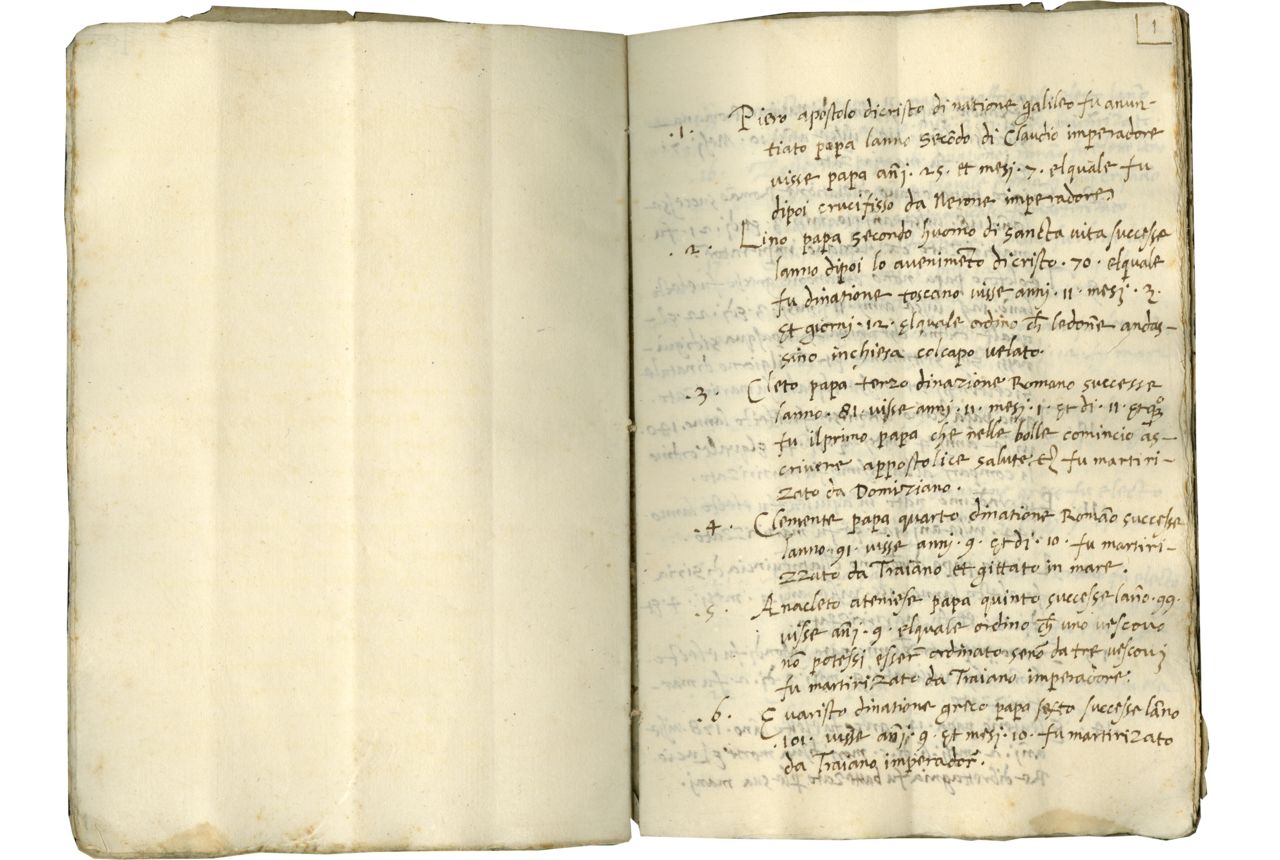 1
.1. Piero apostolo dicristo di natione galileo fu anun-
tiato papa lanno secōdo di Claudio imperadore
visse papa añi. 25. et mesi. 7. elquale fu
dipoi crucifisso da Nerone imperadore
.2. Lino papa secondo huomo di sancta vita successe
lanno dipoi lo avenimēto di cristo. 70. elquale
fu dinatione toscano visse anni. 11. mesi. 3.
et giorni. 12. elquale ordino ch̄ ledonne andas-
sino inchiesa colcapo velato.
.3. Cleto papa terzo dinazione Romano successe
lanno. 81. visse anni. 11. mesi. 1. et di. 11. et
fu ilprimo papa che nelle bolle comincio as-
crivere appostolice salute et fu martiri-
zato da Domiziano.
.4. Clemente papa quarto dinatione Romano successe
lanno. 91. visse anni. 9. et di. 10. fu martiri-
zzato da Traiano et gittato in mare.
.5. Anacleto ateniese papa quinto successe lāno. 99.
visse añi. 9. elquale ordino ch̄ uno vescovo
nō potessi esser ordinato senō da tre vescovi
fu martirizato da Traiano imperadore.
.6. Evaristo dinatione greco papa sexto successe lāno
.101. visse añi. 9. et mesi. 10. fu martirizato
da Traiano imperador.